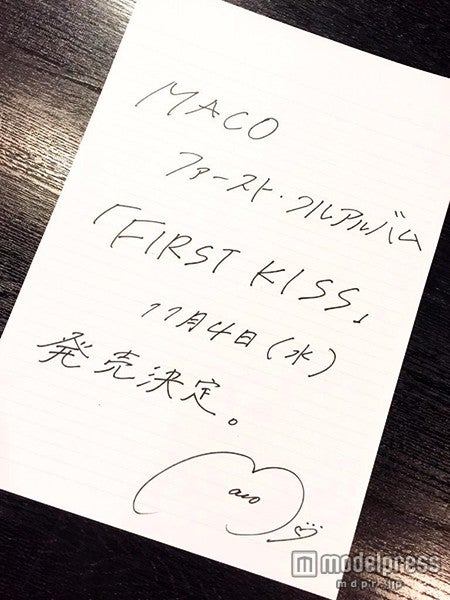 MACO
ファースト・フルアルバム
「FIRST KISS」
11月4日(水)
発売決定。
Maco
modelpress
mdpr.jp